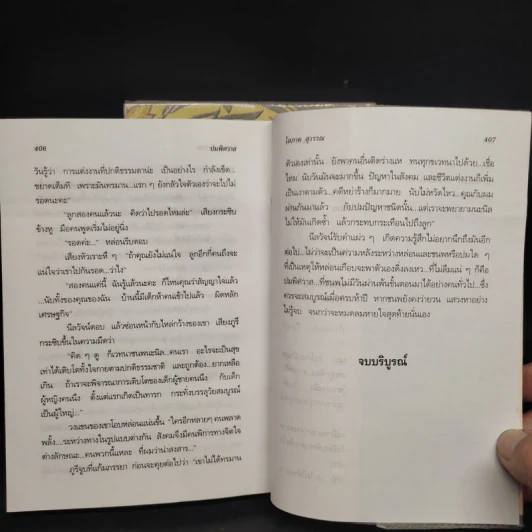 406 ปมพิศวาส
วันรู้ว่า การแต่งงานที่ปกติธรรมดาน่ะ เป็นอย่างไร กำลังเข็ด...
ขยาดเต็มที เพราะมันทรมาน...แรก ๆ ยังกลัวใจตัวเองว่าจะไปไม่
รอดนะคะ"
"ลูกสองคนแล้วนะ คิดว่าไปรอดไหมล่ะ" เสียงกระซิบ
ข้างหู มือคนพูดเริ่มไม่อยู่นิ่ง
"รอดค่ะ..." หล่อนรับตอบ
เสียงหัวเราะหึ ๆ "ถ้าคุณยังไม่แน่ใจ ลูกอีกกี่คนถึงจะ
แน่ใจว่าเราไปกันรอด...ว่าไง"
"สองคนแค่นี้ ฉันรู้แล้วนะคะ ก็ไหนคุณว่าสัญญาใจแล้ว
...นับทั้งของคุณของฉัน บ้านนี้มีเด็กห้าคนเข้าไปแล้ว ผิดหลัก
เศรษฐกิจ"
นีลวัจน์ตอบ แล้วซ่อนหน้ากับไหล่กว้างของเขา เสียงภูรี
กระซิบขึ้นในความมืดว่า
"คิด ๆ ดู ก็เวทนาชนพนะนีล...คนเรา อะไรจะเป็นสุข
เท่าได้เติบโตทั้งใจกายตามปกติธรรมชาติ และถูกต้อง...ยากเหลือ
เกิน ถ้าเราจะพิจารณาการเติบโตของเด็กผู้ชายคนหนึ่ง กับเด็ก
ผู้หญิงคนนึง ตั้งแต่แรกเกิดเป็นทารก กระทั่งบรรลุวัยสมบูรณ์
เป็นผู้ใหญ่..."
วงแขนของเขาโอบหล่อนแน่นขึ้น "ใครอีกหลายๆ คนพลาด
พลั้ง...ระหว่างทางในรูปแบบต่างกัน สังคมจึงมีคนพิการทางจิตใจ
ต่างลักษณะ...คนพวกนี้แหละ ที่ผมว่าน่าสงสาร..."
ภูรีจูบที่แก้มภรรยา ก่อนจะคุยต่อไปว่า "เขาไม่ได้ทรมาน
โสภาค สุวรรณ 407
ตัวเองเท่านั้น ยังพาคนอื่นติดร่างแห ทนทุกขเวทนาไปด้วย...เชื่อ
ไหม นับวันมันจะมากขึ้น ปัญหาในสังคม และชีวิตแต่งงานก็เพิ่ม
เป็นเงาตามตัว...คดีหย่าร้างก็มากมาย นับไม่หวัดไหว...คุณกับผม
ผ่านกันมาแล้ว ...กับปมปัญหาชนิดนั้น...แต่เราจะพยายามนะนีล
ไม่ให้มันเกิดซ้ำ แล้วกระทบกระเทือนไปถึงลูก"
นีลวัจน์รับคำแผ่ว ๆ เกิดความรู้สึกไม่อยากนึกถึงมันอีก
ต่อไป...ไม่ว่าจะเป็นความหลังระหว่างหล่อนและชนพหรือปมใด ๆ
ที่เป็นเหตุให้หล่อนเกือบจะพาตัวเองดิ่งลงเหว...ที่ไม่ลืมแน่ ๆ ก็คือ
ปมพิศวาส...ที่ชนพไม่มีวันผ่านพ้นขั้นตอนมาได้อย่างคนทั่วไป...ซึ่ง
ควรจะสมบูรณ์เมื่อครบห้าปี หากชนพยังคงว่ายวน แสวงหาอย่าง
ไม่รู้จบ จนกว่าจะหมดลมหายใจสุดท้ายนั่นเอง
จบบริบูรณ์